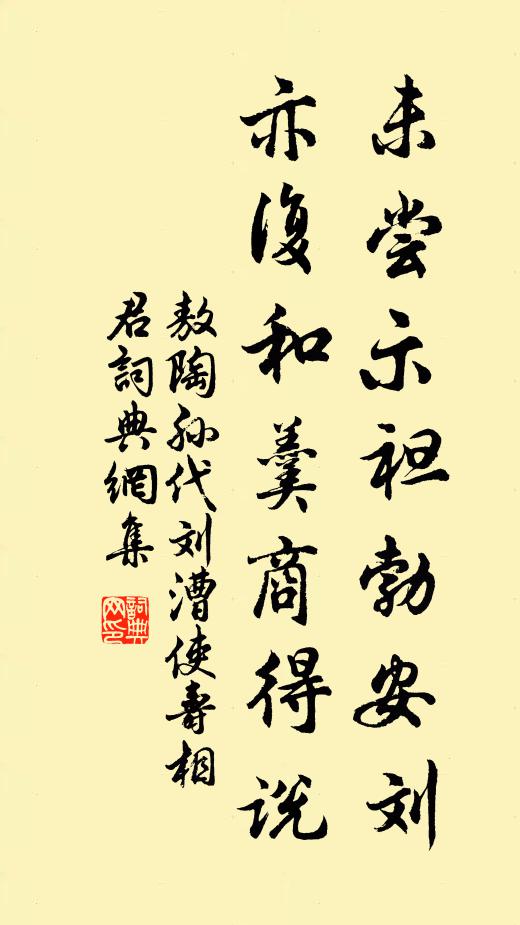 未尝示袒勃安刘
亦復和羹商得说
敖陶孙代刘漕使寿相
君詞典網集
詞典
网印